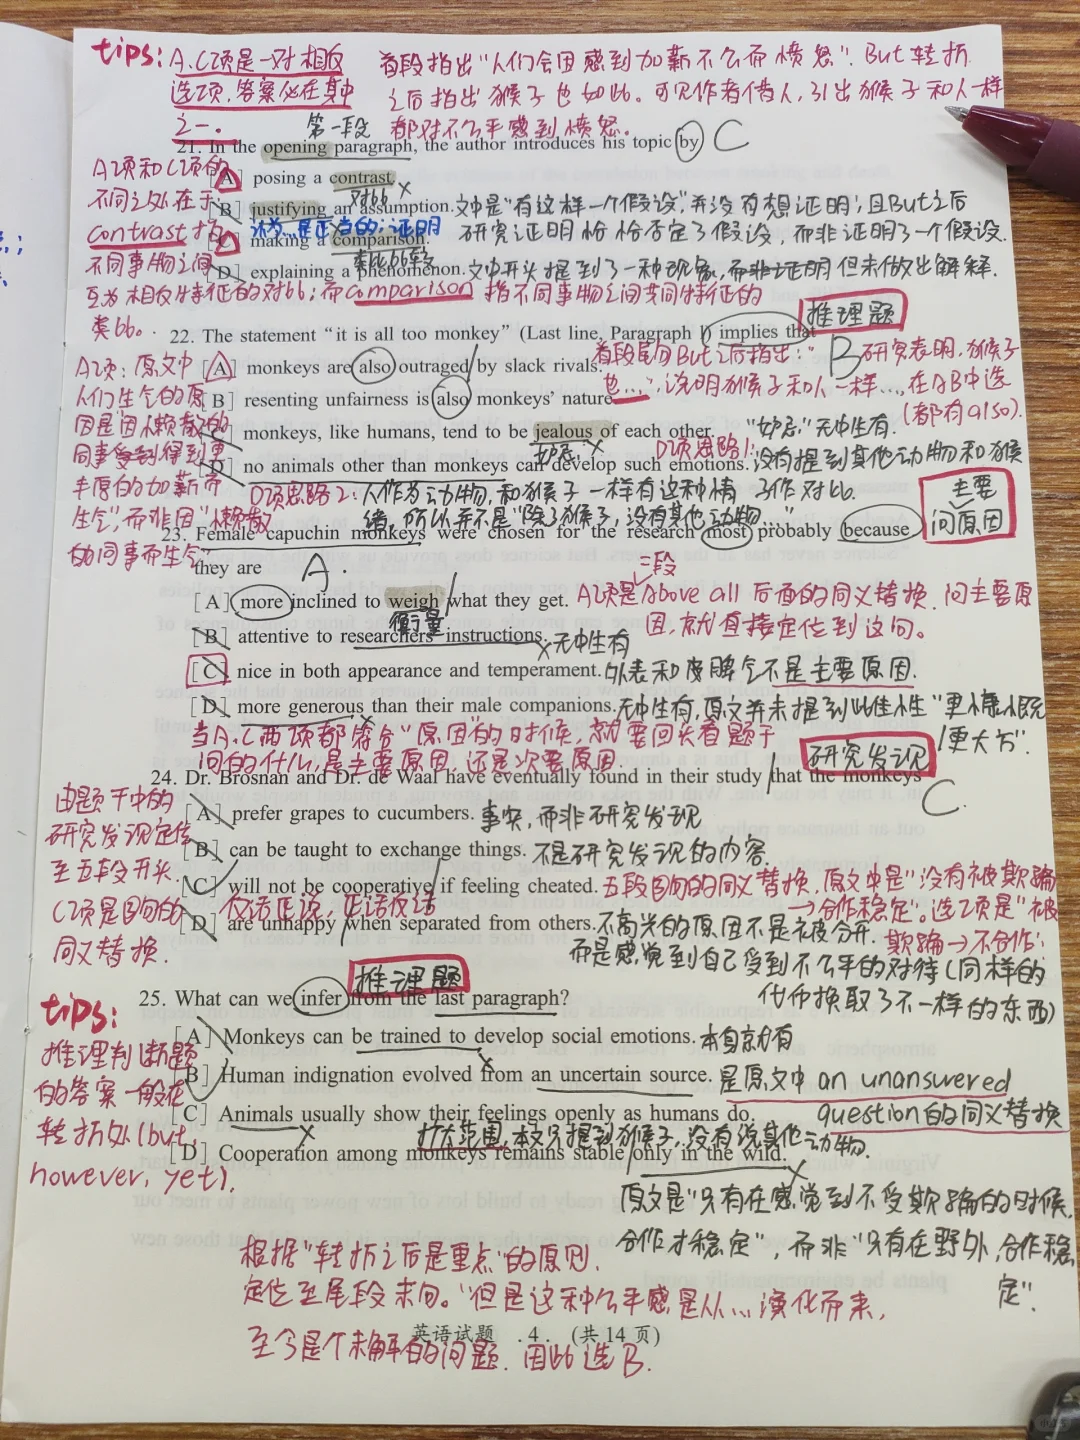 tips: A.C项是一对相反
选项,答案必在其中
之一。
首段指出"人们会因感到加薪不公而愤怒". But转折
之后指出猴子也如此。可见作者借人,引出猴子和人一样
都对不公平感到愤怒。
第一段
21. In the opening paragraph, the author introduces his topic by C
[A] posing a contrast.
对比 ×
[B] justifying an assumption. 文中是"有这样一个假设",并没有想证明;且But之后
认为…是正当的;证明
研究证明恰恰否定了假设,而非证明了一个假设.
[C] making a comparison.
[D] explaining a phenomenon. 文中开头提到了一种现象,而非证明但未做出解释.
A项和C项的
不同之处在于
contrast指
不同事物之间
互为相反特征的对比;而comparison 指不同事物之间共同特征的
类比。
推理题
22. The statement "it is all too monkey" (Last line, Paragraph 1) implies that
B
首段尾句But之后指出:"
研究表明,猴子
也…",说明猴子和人一样…,在AB中选
(都有also).
[A] monkeys are also outraged by slack rivals.
[B] resenting unfairness is also monkeys' nature.
[C] monkeys, like humans, tend to be jealous of each other. "妒忌"无中生有.
妒忌 ×
[D] no animals other than monkeys can develop such emotions. 没有提到其他动物和猴
D项思路1:
子作对比.
D项思路2:人作为动物,和猴子一样有这种情
绪,所以并不是"除了猴子,没有其他动物…"
A项:原文中
人们生气的原
因是"因懒散的
同事受到得到更
丰厚的加薪而
生气",而非因"懒散
的同事而生气"
主要
问原因
23. Female capuchin monkeys were chosen for the research most probably because
they are A.
三段
[A] more inclined to weigh what they get. A项是Above all 后面的同义替换.问主要原
衡量
因,就直接定位到这句。
[B] attentive to researchers' instructions. × 无中生有
[C] nice in both appearance and temperament. 外表和度脾气不是主要原因.
[D] more generous than their male companions. 无中生有,原文并未提到此佳性"更慷慨
/更大方".
当A.C两项都符合"原因"的时候,就要回头看题干
问的什么,是主要原因,还是次要原因.
研究发现
24. Dr. Brosnan and Dr. de Waal have eventually found in their study that the monkeys
C
[A] prefer grapes to cucumbers. 事实,而非研究发现
[B] can be taught to exchange things. 不是研究发现的内容.
[C] will not be cooperative if feeling cheated. 五段首句的同义替换,原文中是"没有被欺骗
反话正说,正话反话
→合作稳定".选项是"被
欺骗→不合作".
[D] are unhappy when separated from others. 不高兴的原因不是被分开.
而是感觉到自己受到不公平的对待(同样的
代币换取了不一样的东西)
由题干中的
研究发现定位
至五段开头.
C项是首句的
同义替换.
推理题
25. What can we infer from the last paragraph?
[A] Monkeys can be trained to develop social emotions. 本身就有
×
[B] Human indignation evolved from an uncertain source. 是原文中 an unanswered
question的同义替换
[C] Animals usually show their feelings openly as humans do.
× 扩大范围,本文只提到猴子,没有说其他动物.
[D] Cooperation among monkeys remains stable only in the wild.
×
原文是"只有在感觉到不受欺骗的时候,
合作才稳定",而非"只有在野外,合作稳
定".
tips:
推理判断题
的答案一般在
转折处(but,
however, yet).
根据"转折之后是重点"的原则,
定位至尾段末句."但是这种公平感是从…演化而来,
至今是个未解的问题.因此选B.
英语试题 .4. (共14页)